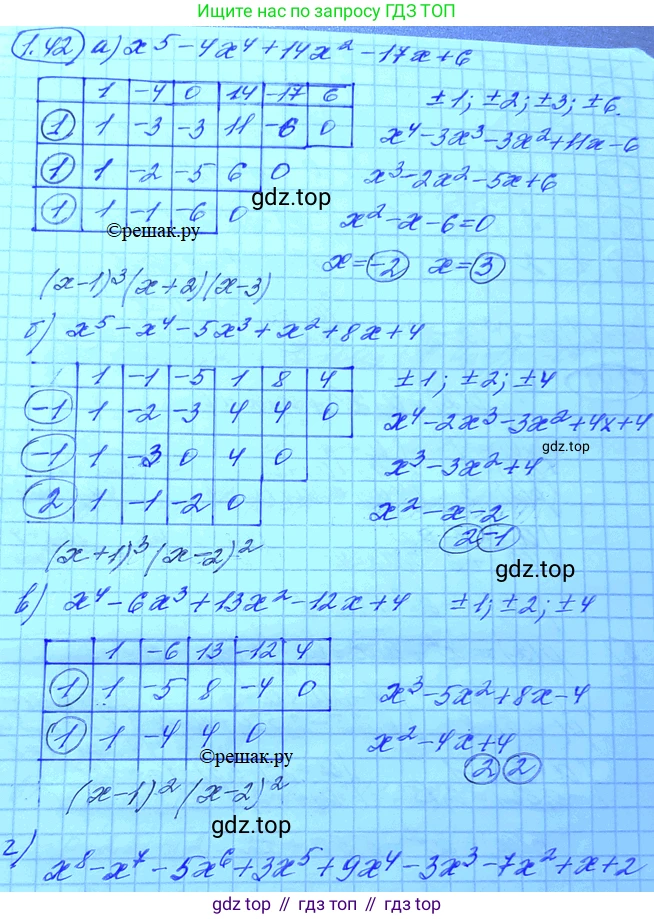 Нашли по запросу ГДЗ ТОП
1.42) а) x⁵ - 4x⁴ + 14x² - 17x + 6
1 -4 0 14 -17 6
1 1 -3 -3 11 -6 0
1 1 -2 -5 6 0
1 1 -1 -6 0
±1; ±2; ±3; ±6.
x⁴ - 3x³ - 3x² + 11x - 6
x³ - 2x² - 5x + 6
gdz.top
x² - x - 6 = 0
©решак.ру
x = -2 x = 3
(x-1)³(x+2)(x-3)
б) x⁵ - x⁴ - 5x³ + x² + 8x + 4
1 -1 -5 1 8 4
-1 1 -2 -3 4 4 0
-1 1 -3 0 4 0
2 1 -1 -2 0
±1; ±2; ±4
x⁴ - 2x³ - 3x² + 4x + 4
gdz.top
x³ - 3x² + 4
x² - x - 2
2 -1
(x+1)³(x-2)²
gdz.top
в) x⁴ - 6x³ + 13x² - 12x + 4 ±1; ±2; ±4
1 -6 13 -12 4
1 1 -5 8 -4 0
1 1 -4 4 0
x³ - 5x² + 8x - 4
x² - 4x + 4
©решак.ру
2 2
(x-1)²(x-2)²
gdz.top
г)
x⁸ - x⁷ - 5x⁶ + 3x⁵ + 9x⁴ - 3x³ - 7x² + x + 2
gdz.top // гдз топ // гдз.top